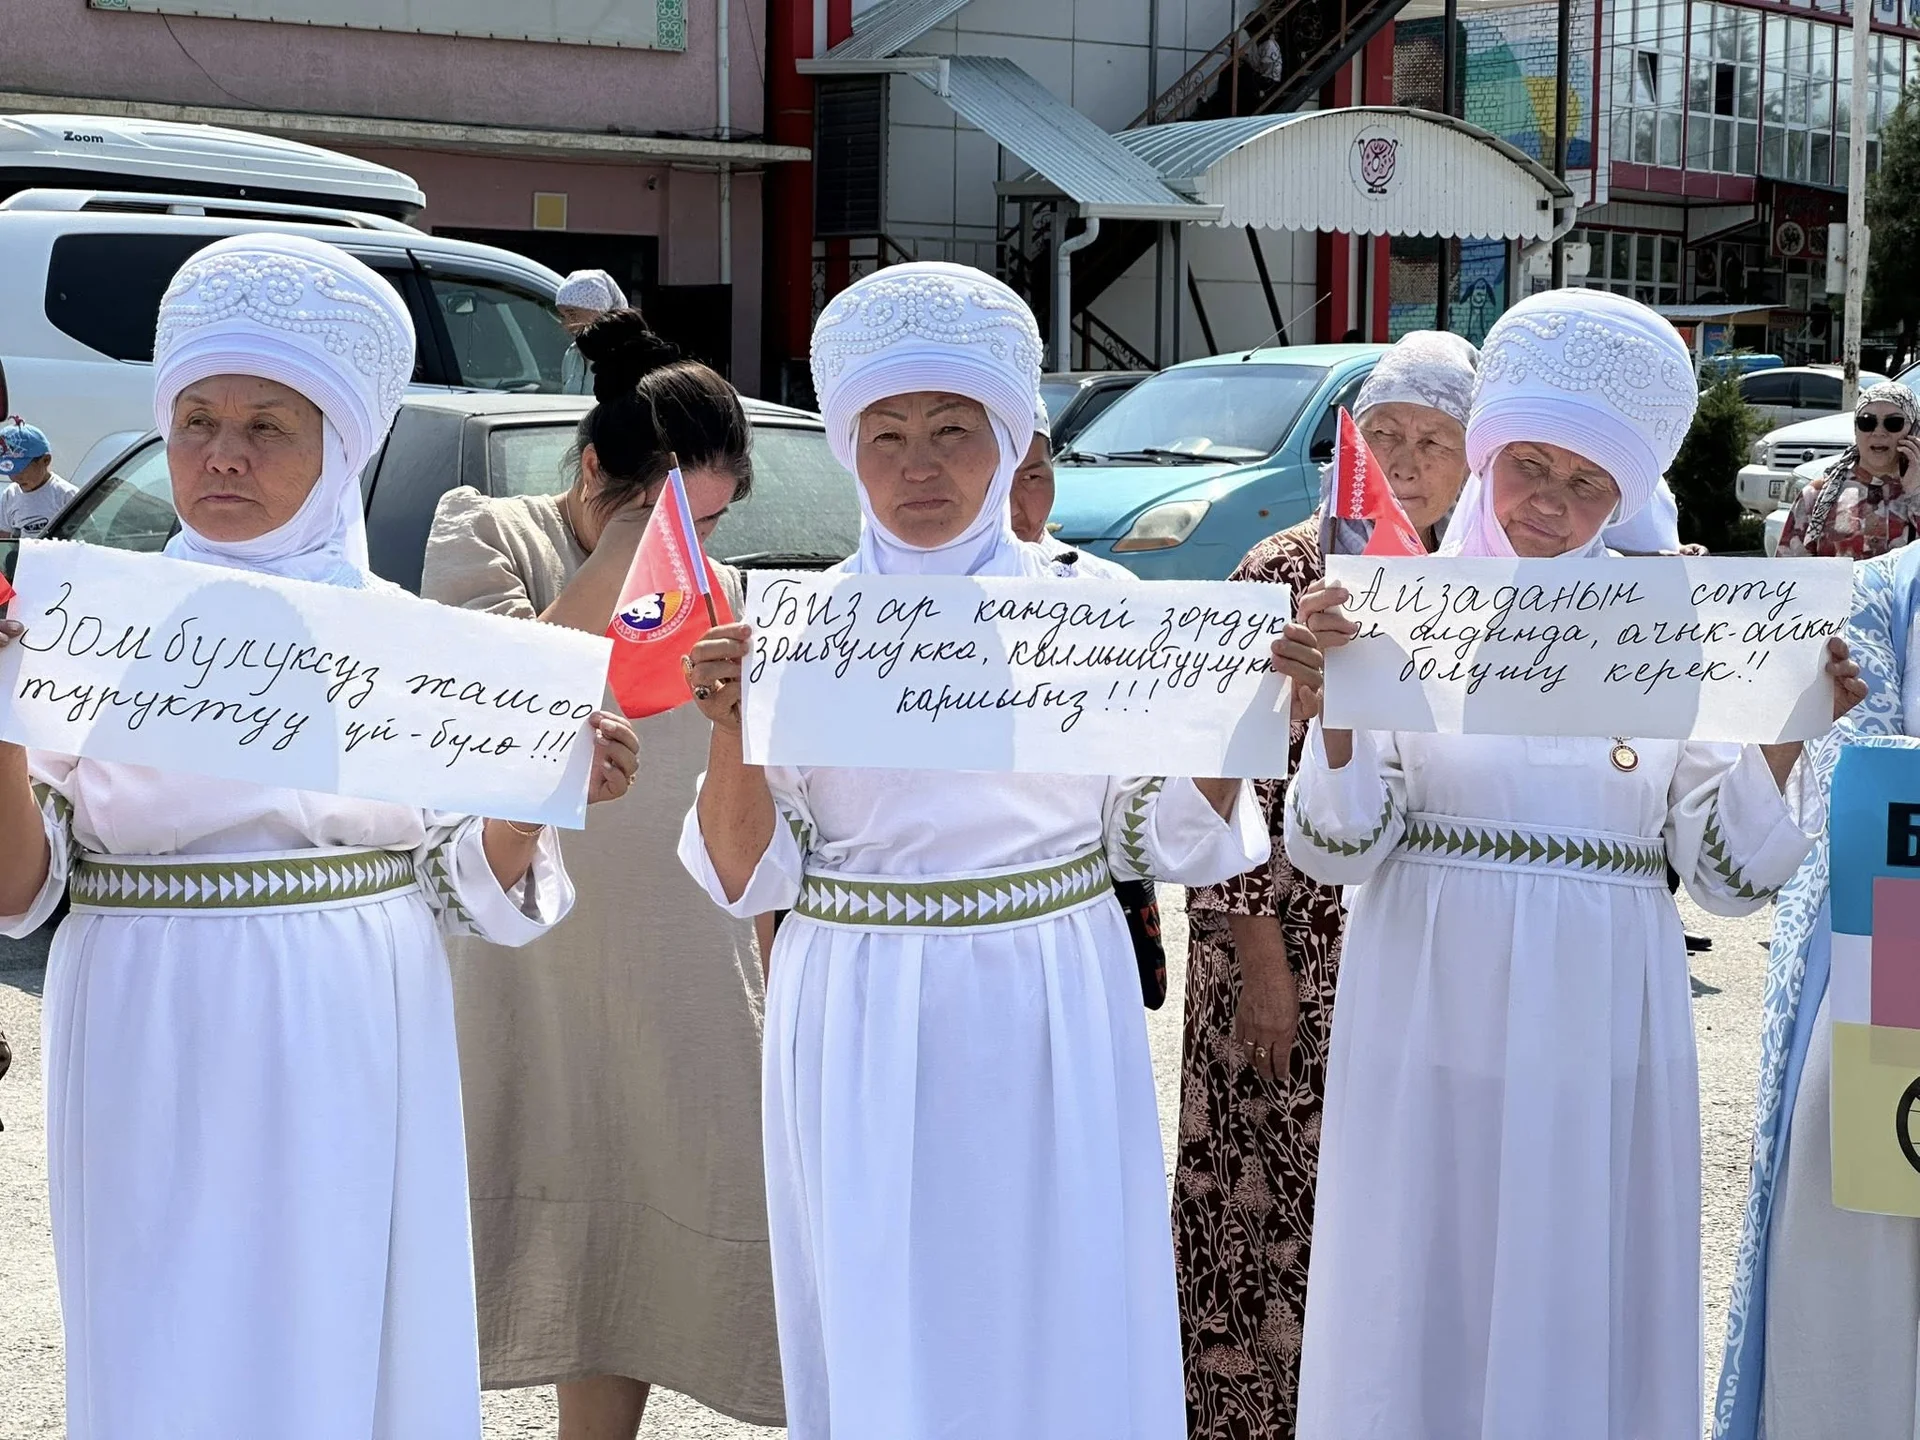 Zoom
Зомбулуксуз жашоо
туруктуу үй-бүлө!!!
Биз ар кандай зордук
зомбулукка, кылмыштуулукка
каршыбыз!!!
Айзаданын соту
эл алдында, ачык-айкын
болушу керек!!
КААРЫ
Б